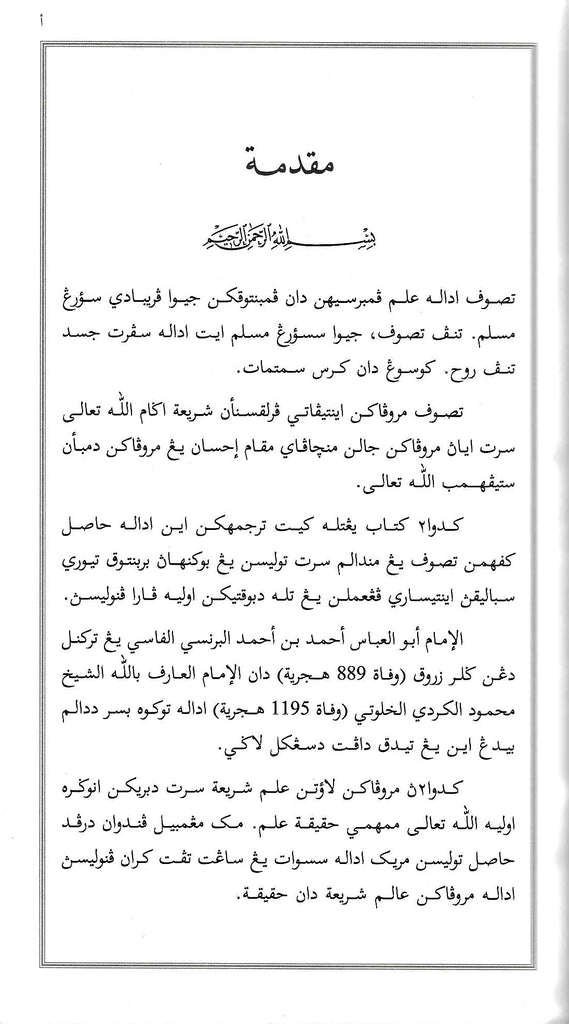 أ
مقدمة
بسم الله الرحمن الرحيم
تصوف اداله علم ڤمبرسيهن دان ڤمبنتوقكن جيوا ڤريبادي سؤرڠ
مسلم. تنڤ تصوف، جيوا سسؤرڠ مسلم ايت اداله سڤرت جسد
تنڤ روح. كوسوڠ دان كرس سمتمات.
تصوف مروڤاكن اينتيڤاتي ڤرلقسنأن شريعة اݢام الله تعالى
سرت اياڽ مروڤاكن جالن منچاڤاي مقام إحسان يڠ مروڤاكن دمبأن
ستيڤهمب الله تعالى.
كدوا٢ كتاب يڠتله كيت ترجمهكن اين اداله حاصل
كفهمن تصوف يڠ مندالم سرت توليسن يڠ بوكنهاڽ بربنتوق تيوري
سباليقڽ اينتيساري ڤڠعملن يڠ تله دبوقتيكن اوليه ڤارا ڤنوليسڽ.
الإمام أبو العباس أحمد بن أحمد البرنسي الفاسي يڠ تركنل
دڠن ݢلر زروق (وفاة 889 هـجرية) دان الإمام العارف بالله الشيخ
محمود الكردي الخلوتي (وفاة 1195 هـجرية) اداله توكوه بسر ددالم
بيدڠ اين يڠ تيدق داڤت دسڠكل لاݢي.
كدوا٢ڽ مروڤاكن لاؤتن علم شريعة سرت دبريكن انوݢره
اوليه الله تعالى ممهمي حقيقة علم. مک مڠمبيل ڤندوان درڤد
حاصل توليسن مريک اداله سسوات يڠ ساڠت تڤت كران ڤنوليسڽ
اداله مروڤاكن عالم شريعة دان حقيقة.